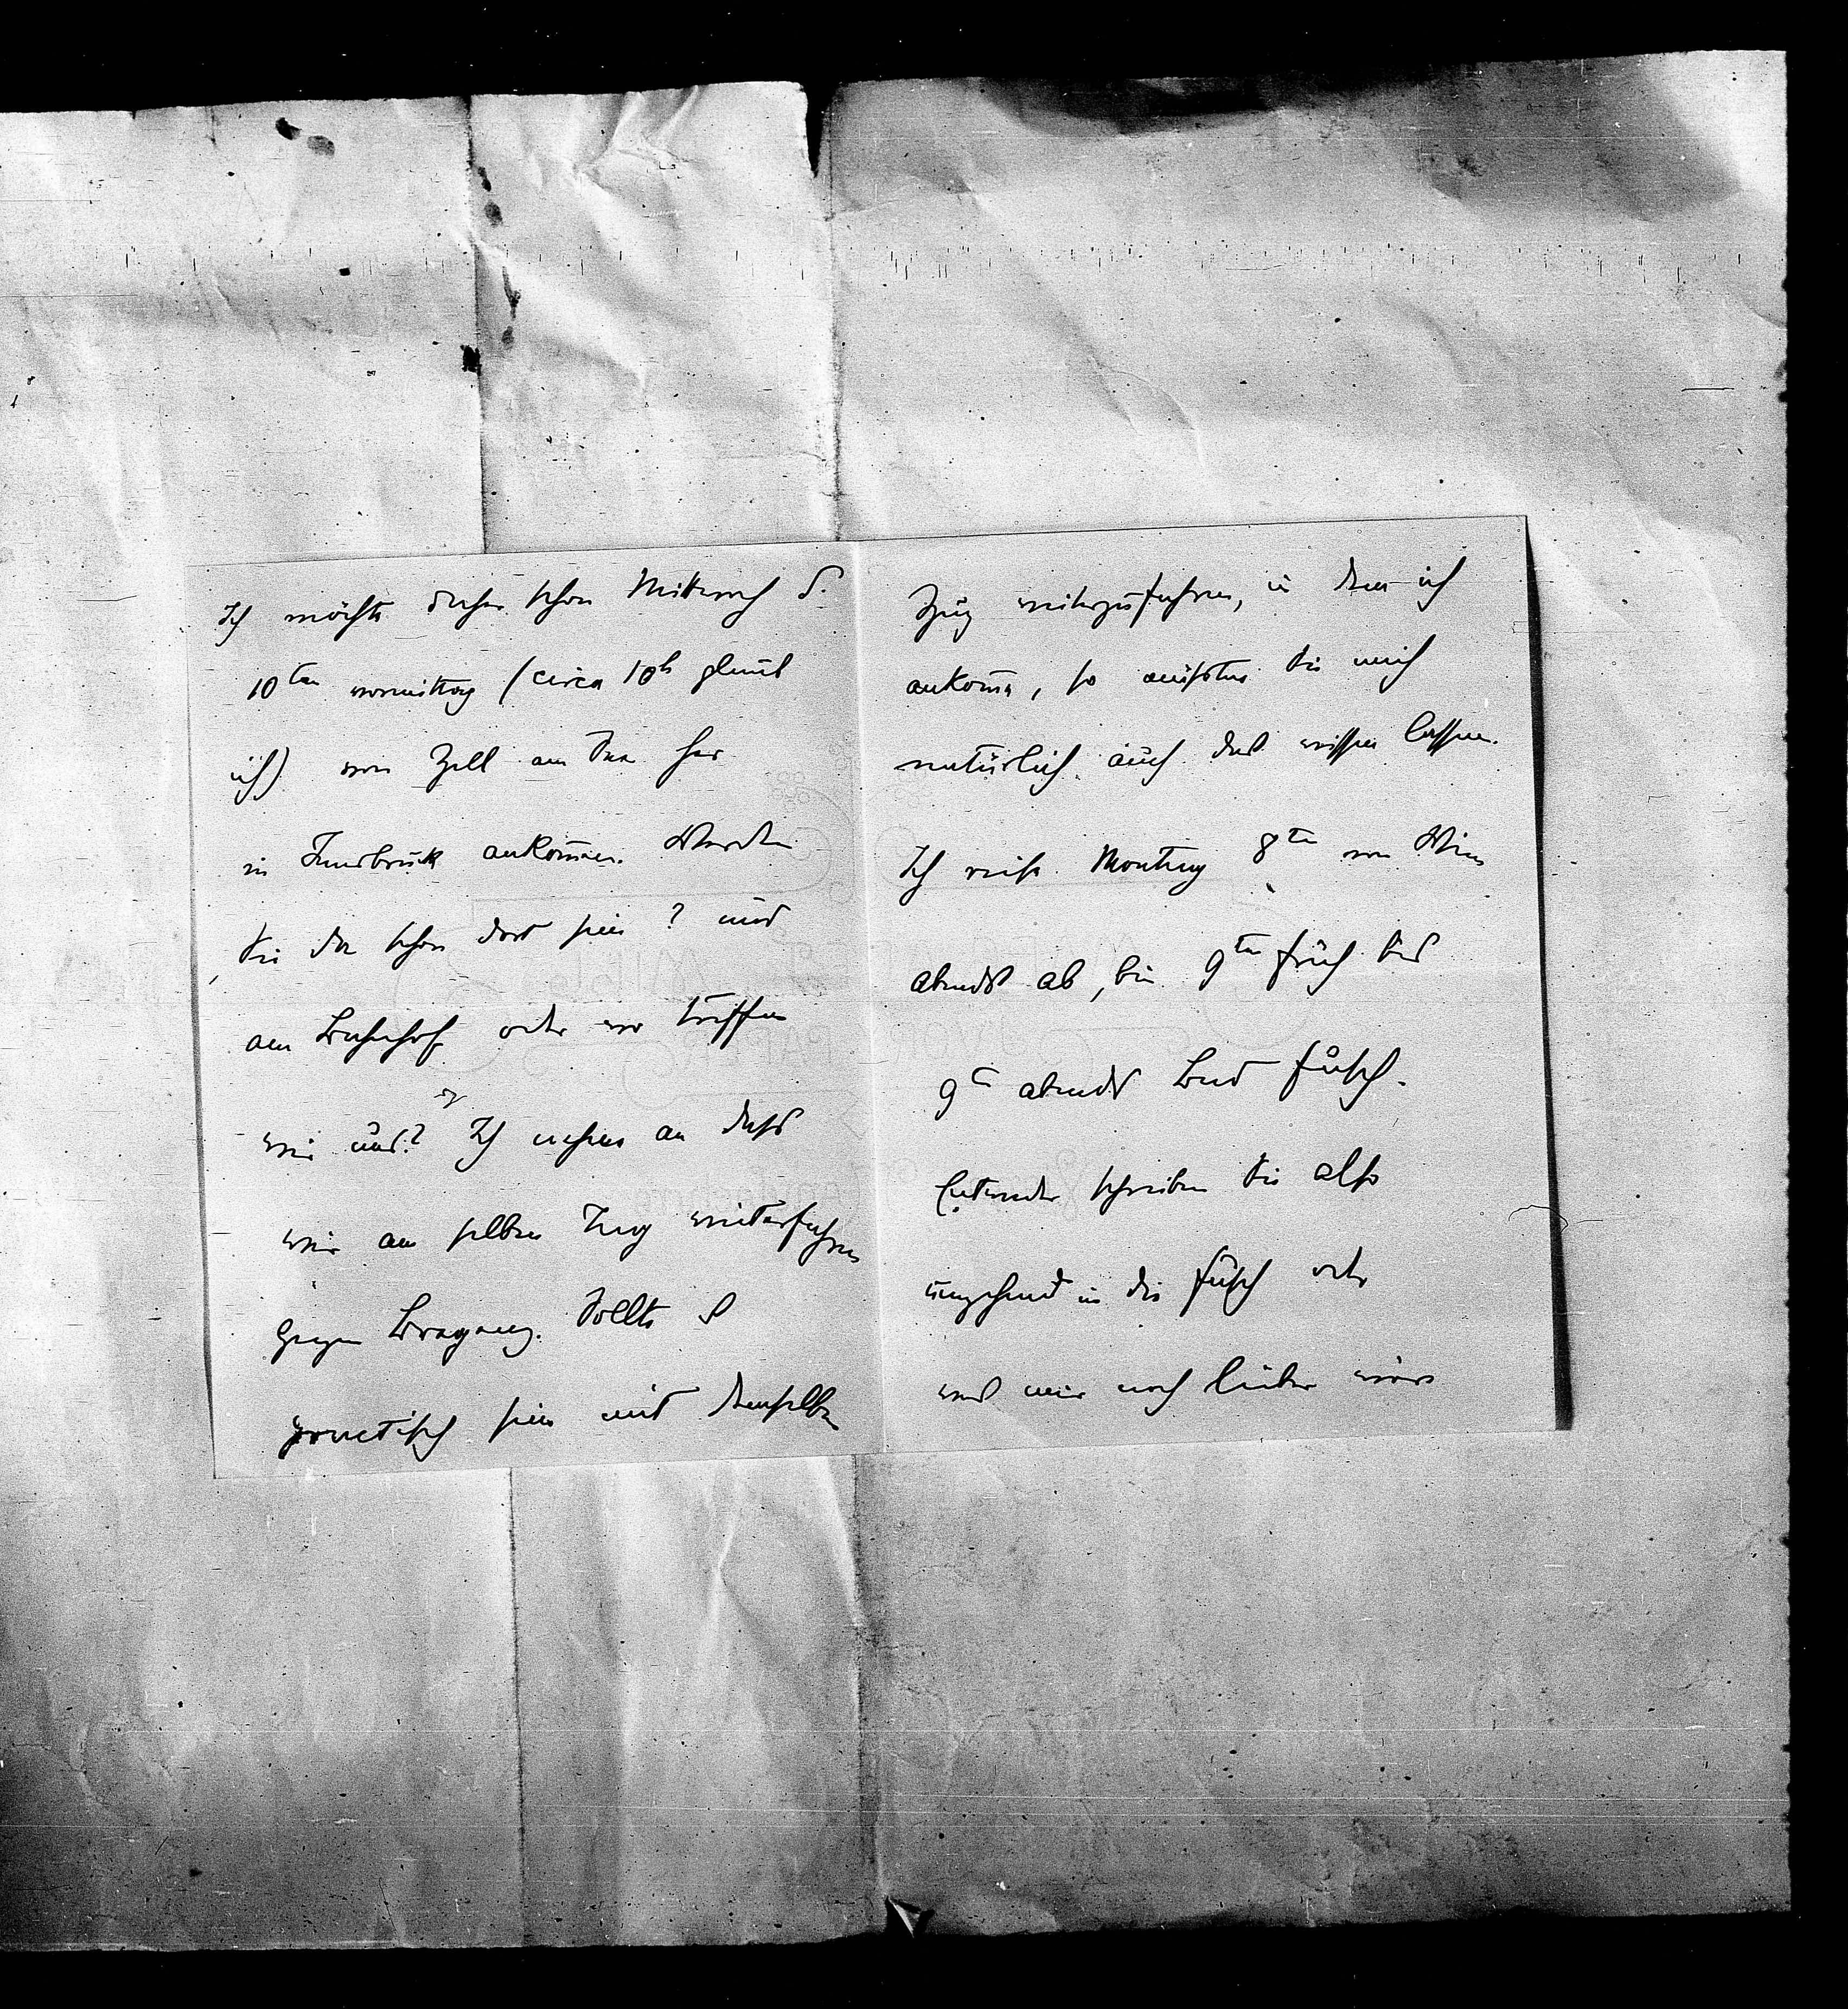 Ich möchte daher schon Mittwoch d.
10ten vormittag (circa 10h glaub
ich) von Zell am See her
in Innsbruck ankom̄en. Werden
Sie da schon dort sein? und
am Bahnhof oder wo treffen
wir uns? Ich nehme an dass
wir am selben Tag weiterfahren
gegen Bregenz. Sollte es
practisch sein mit demselben
Zug weiterzufahren, in dem ich
ankom̄e, so müssten Sie mich
natürlich auch das wissen lassen.
Ich reise Montag 8ten von Wien
abends ab, bin 9ten früh bis
9ten abends Bad Fusch.
Entweder schreiben Sie also
umgehend in die Fusch oder
was mir noch lieber wäre